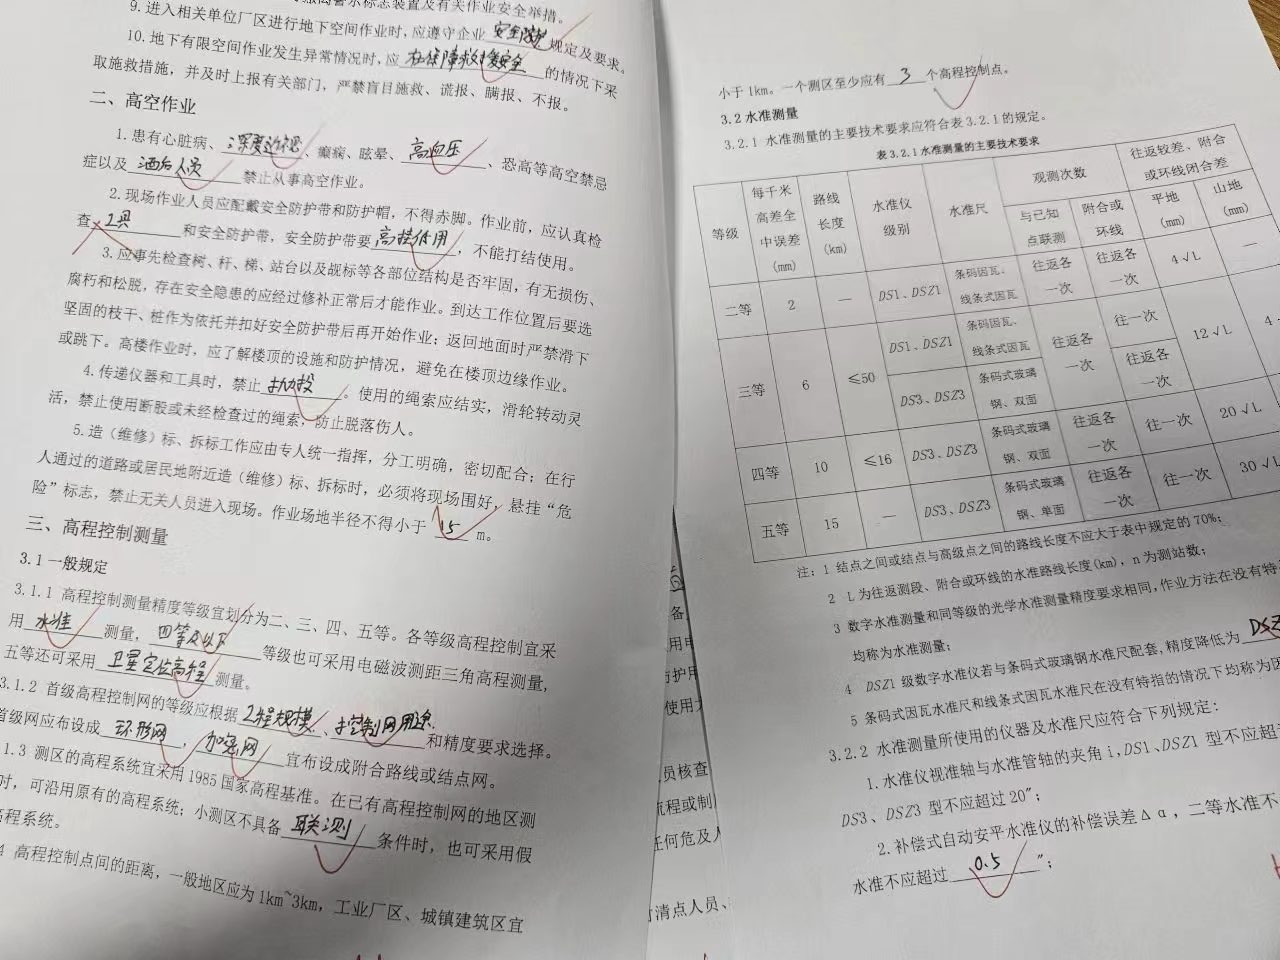 警示标志装置及有关作业安全举措。
9.进入相关单位厂区进行地下空间作业时,应遵守企业 安全防护 规定及要求。
10.地下有限空间作业发生异常情况时,应 在保障救援安全 的情况下采
取施救措施,并及时上报有关部门,严禁盲目施救、谎报、瞒报、不报。
二、高空作业
1.患有心脏病、深度近视、癫痫、眩晕、高血压、恐高等高空禁忌
症以及 酒后人员 禁止从事高空作业。
2.现场作业人员应配戴安全防护带和防护帽,不得赤脚。作业前,应认真检
查 工具 和安全防护带,安全防护带要 高挂低用 ,不能打结使用。
3.应事先检查树、杆、梯、站台以及觇标等各部位结构是否牢固,有无损伤、
腐朽和松脱,存在安全隐患的应经过修补正常后才能作业。到达工作位置后要选
坚固的枝干、桩作为依托并扣好安全防护带后再开始作业;返回地面时严禁滑下
或跳下。高楼作业时,应了解楼顶的设施和防护情况,避免在楼顶边缘作业。
4.传递仪器和工具时,禁止 抛投 。使用的绳索应结实,滑轮转动灵
活,禁止使用断股或未经检查过的绳索,防止脱落伤人。
5.造(维修)标、拆标工作应由专人统一指挥,分工明确,密切配合;在行
人通过的道路或居民地附近造(维修)标、拆标时,必须将现场围好,悬挂“危
险”标志,禁止无关人员进入现场。作业场地半径不得小于 15 m。
三、高程控制测量
3.1 一般规定
3.1.1 高程控制测量精度等级宜划分为二、三、四、五等。各等级高程控制宜采
用 水准 测量,四等及以下 等级也可采用电磁波测距三角高程测量,
五等还可采用 卫星定位高程 测量。
3.1.2 首级高程控制网的等级应根据 工程规模 、控制网用途 和精度要求选择。
首级网应布设成 环形网 , 加密网 宜布设成附合路线或结点网。
1.3 测区的高程系统宜采用1985国家高程基准。在已有高程控制网的地区测
时,可沿用原有的高程系统;小测区不具备 联测 条件时,也可采用假
高程系统。
4 高程控制点间的距离,一般地区应为1km~3km,工业厂区、城镇建筑区宜
小于1km。一个测区至少应有 3 个高程控制点。
3.2 水准测量
3.2.1 水准测量的主要技术要求应符合表3.2.1的规定。
表3.2.1水准测量的主要技术要求
等级 每千米高差全中误差(mm) 路线长度(km) 水准仪级别 水准尺 观测次数 往返较差、附合或环线闭合差
与已知点联测 附合或环线 平地(mm) 山地(mm)
二等 2 — DS1、DSZ1 条码因瓦、线条式因瓦 往返各一次 往返各一次 4√L —
三等 6 ≤50 DS1、DSZ1 条码因瓦、线条式因瓦 往返各一次 往一次 12√L 4
DS3、DSZ3 条码式玻璃钢、双面 往返各一次
四等 10 ≤16 DS3、DSZ3 条码式玻璃钢、双面 往返各一次 往一次 20√L
五等 15 — DS3、DSZ3 条码式玻璃钢、单面 往返各一次 往一次 30√L
注:1 结点之间或结点与高级点之间的路线长度不应大于表中规定的70%;
2 L为往返测段、附合或环线的水准路线长度(km),n为测站数;
3 数字水准测量和同等级的光学水准测量精度要求相同,作业方法在没有特
均称为水准测量;
4 DSZ1 级数字水准仪若与条码式玻璃钢水准尺配套,精度降低为 DSZ
5 条码式因瓦水准尺和线条式因瓦水准尺在没有特指的情况下均称为因
3.2.2 水准测量所使用的仪器及水准尺应符合下列规定:
1.水准仪视准轴与水准管轴的夹角i,DS1、DSZ1 型不应超
DS3、DSZ3 型不应超过20″;
2.补偿式自动安平水准仪的补偿误差Δα,二等水准不
水准不应超过 0.5 ″;
员核查
流程或制
任何危及人
清点人员、